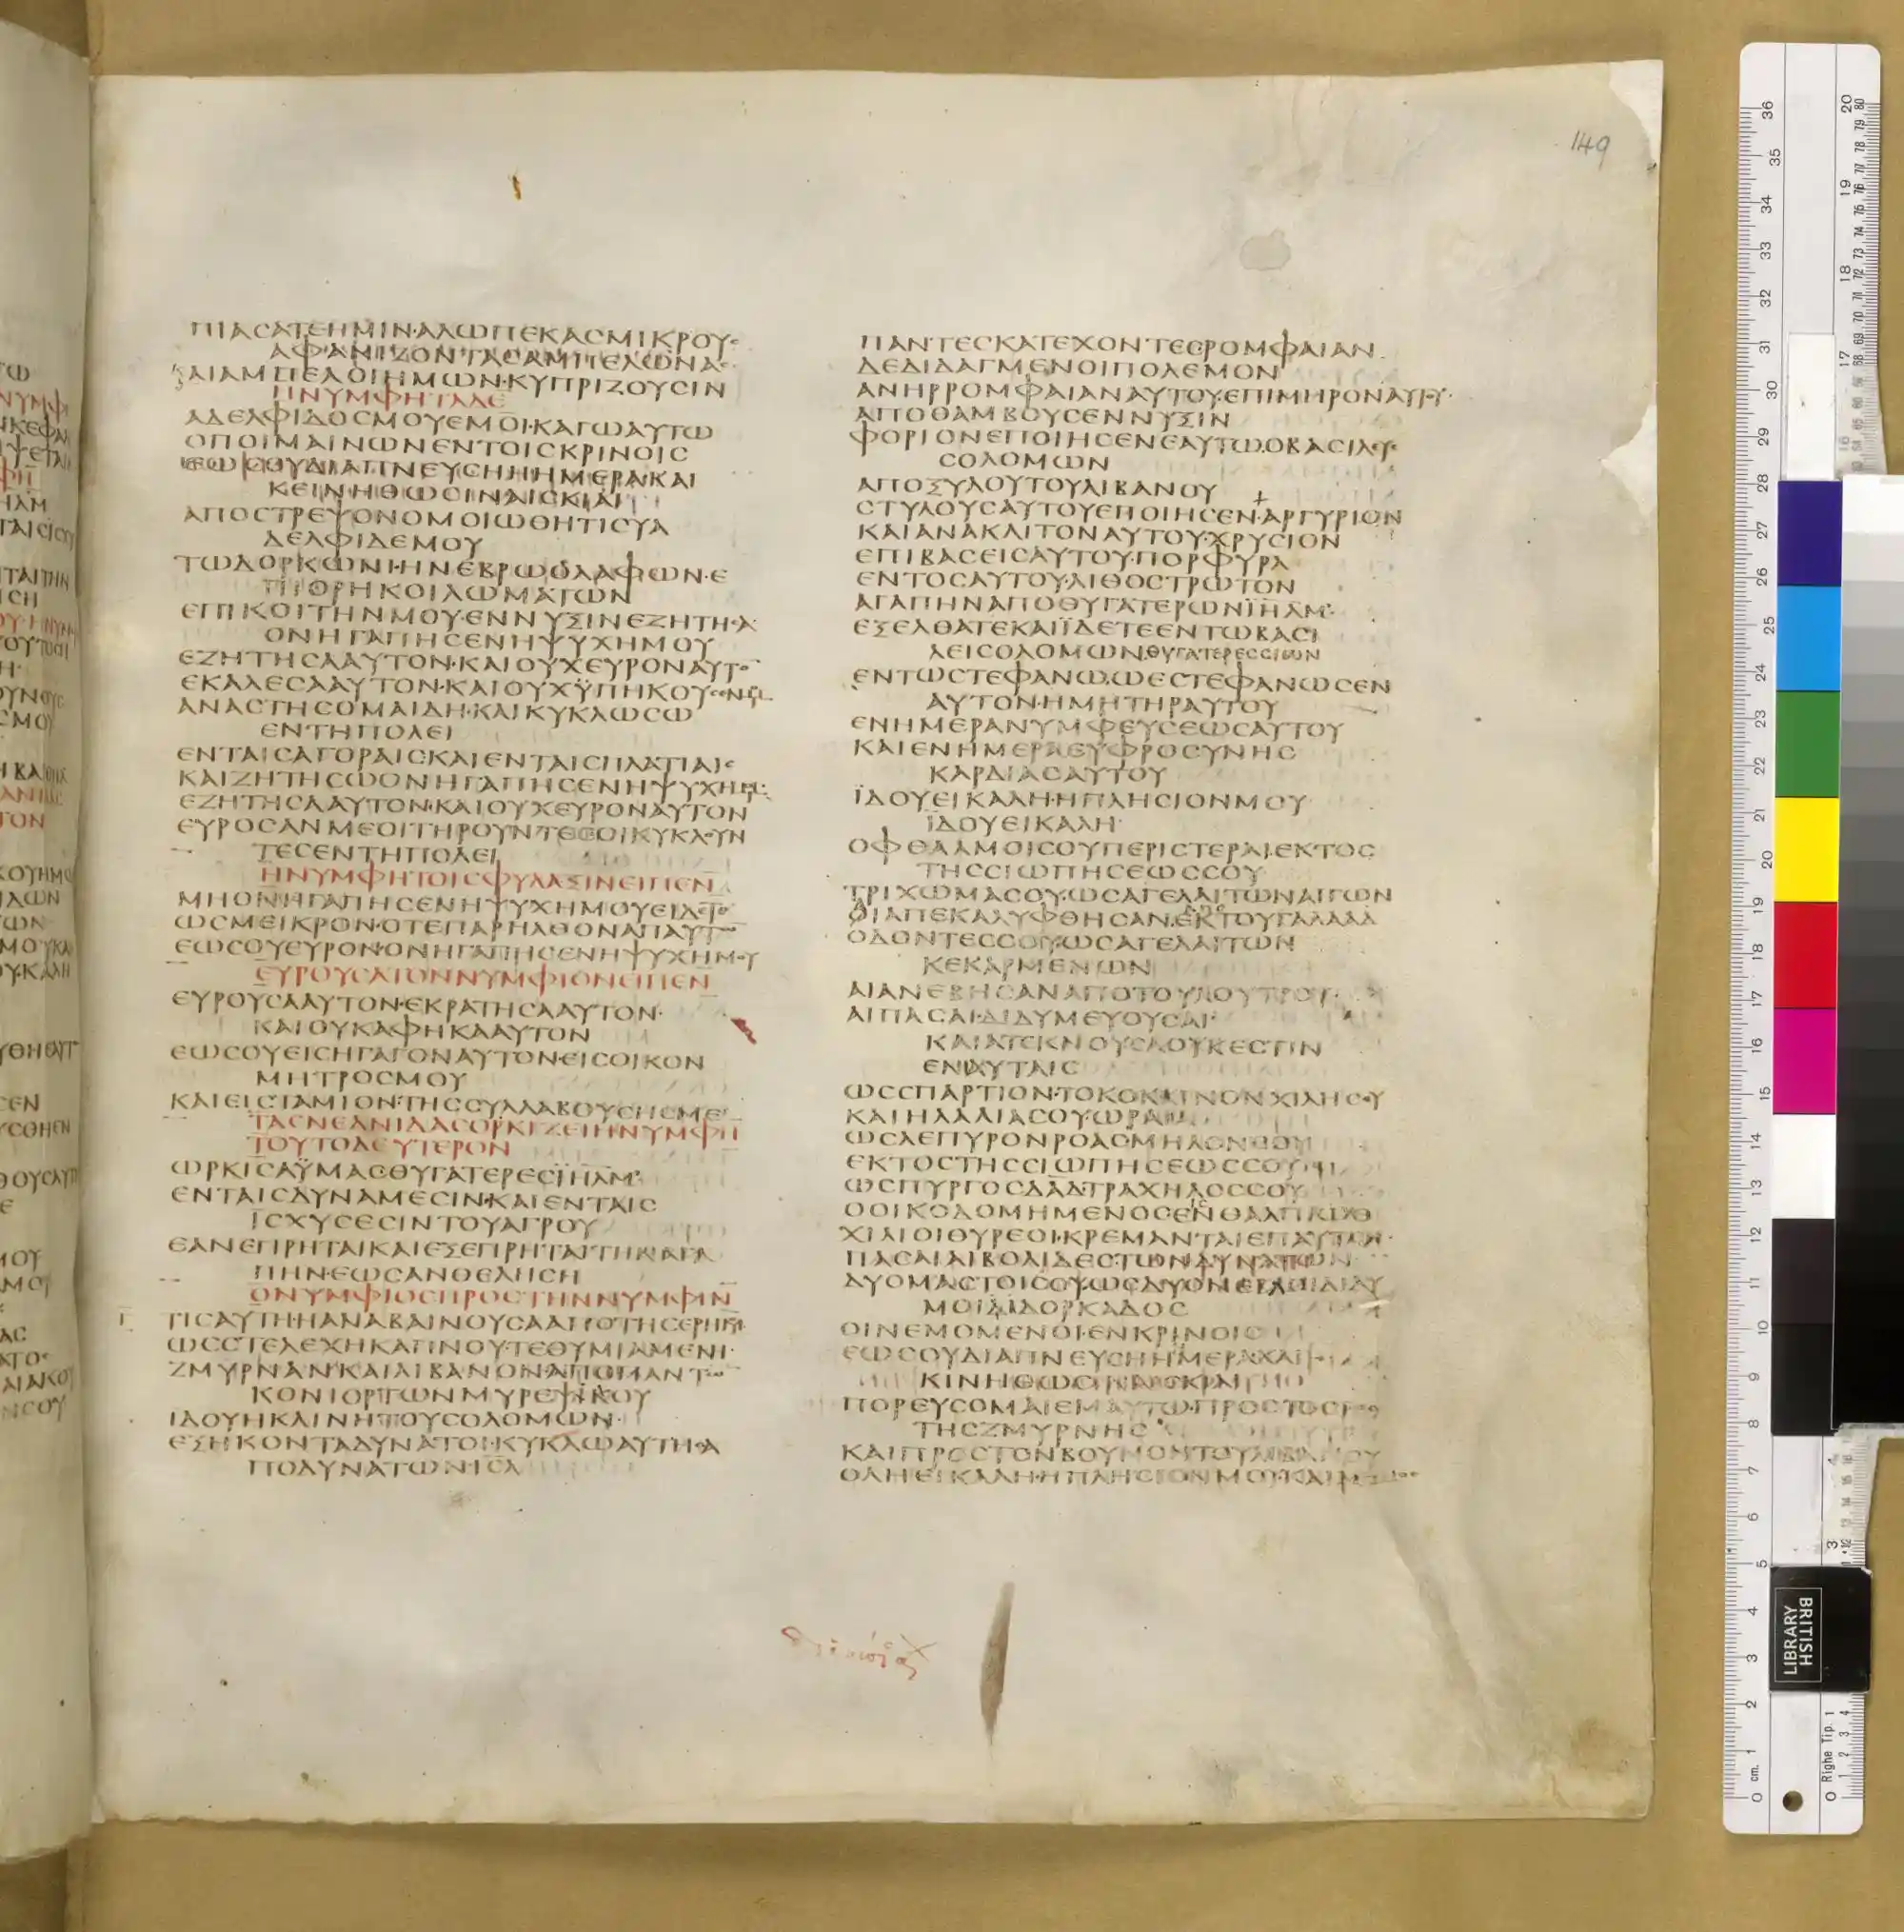 ΠΙΑCΑΤΕΗΜΙΝ·ΑΛΩΠΕΚΑCΜΙΚΡΟΥC
ΑΦΑΝΙΖΟΝΤΑCΑΜΠΕΛΩΝΑC
ΑΙΑΜΠΕΛΟΙΗΜΩΝ·ΚΥΠΡΙΖΟΥCΙΝ
ΗΝΥΜΦΗΤΑΔΕ
ΑΔΕΛΦΙΔΟCΜΟΥΕΜΟΙ·ΚΑΓΩΑΥΤΩ
ΟΠΟΙΜΑΙΝΩΝΕΝΤΟΙCΚΡΙΝΟΙC
ΕΩCΟΥΔΙΑΠΝΕΥCΗΗΗΜΕΡΑΚΑΙ
ΚΕΙΝΗΘΩCΙΝΑΙCΚΙΑΙ
ΑΠΟCΤΡΕΨΟΝΟΜΟΙΩΘΗΤΙCΥΑ
ΔΕΛΦΙΔΕΜΟΥ
ΤΩΔΟΡΚΩΝΙ·ΗΝΕΒΡΩΕΛΑΦΩΝ·Ε
ΠΙΟΡΗΚΟΙΛΩΜΑΤΩΝ
ΕΠΙΚΟΙΤΗΝΜΟΥ·ΕΝΝΥΞΙΝΕΖΗΤΗCΑ
ΟΝΗΓΑΠΗCΕΝΗΨΥΧΗΜΟΥ
ΕΖΗΤΗCΑΑΥΤΟΝ·ΚΑΙΟΥΧΕΥΡΟΝΑΥΤΟ
ΕΚΑΛΕCΑΑΥΤΟΝ·ΚΑΙΟΥΧΫΠΗΚΟΥCΕΝ
ΑΝΑCΤΗCΟΜΑΙΔΗ·ΚΑΙΚΥΚΛΩCΩ
ΕΝΤΗΠΟΛΕΙ
ΕΝΤΑΙCΑΓΟΡΑΙCΚΑΙΕΝΤΑΙCΠΛΑΤΙΑΙC
ΚΑΙΖΗΤΗCΩΟΝΗΓΑΠΗCΕΝΗΨΥΧΗ
ΕΖΗΤΗCΑΑΥΤΟΝ·ΚΑΙΟΥΧΕΥΡΟΝΑΥΤΟΝ
ΕΥΡΟCΑΝΜΕΟΙΤΗΡΟΥΝΤΕCΟΙΚΥΚΛΟΥΝ
ΤΕCΕΝΤΗΠΟΛΕΙ
ΗΝΥΜΦΗΤΟΙCΦΥΛΑΞΙΝΕΙΠΕΝ
ΜΗΟΝΗΓΑΠΗCΕΝΗΨΥΧΗΜΟΥΕΙΔΕΤΕ
ΩCΜΕΙΚΡΟΝ·ΟΤΕΠΑΡΗΛΘΟΝΑΠΑΥΤΩ
ΕΩCΟΥΕΥΡΟΝ·ΟΝΗΓΑΠΗCΕΝΗΨΥΧΗΜΟΥ
ΕΥΡΟΥCΑΤΟΝΝΥΜΦΙΟΝΕΙΠΕΝ
ΕΥΡΟΥCΑΑΥΤΟΝ·ΕΚΡΑΤΗCΑΑΥΤΟΝ·
ΚΑΙΟΥΚΑΦΗΚΑΑΥΤΟΝ
ΕΩCΟΥΕΙCΗΓΑΓΟΝΑΥΤΟΝ·ΕΙCΟΙΚΟΝ
ΜΗΤΡΟCΜΟΥ
ΚΑΙΕΙCΤΑΜΙΟΝ·ΤΗCCΥΛΛΑΒΟΥCΗCΜΕ
ΤΑCΝΕΑΝΙΔΑCΟΡΚΙΖΕΙΗΝΥΜΦΗ
ΤΟΥΤΟΔΕΥΤΕΡΟΝ
ΩΡΚΙCΑΫΜΑC·ΘΥΓΑΤΕΡΕCΪΗΛΜ
ΕΝΤΑΙCΔΥΝΑΜΕCΙΝ·ΚΑΙΕΝΤΑΙC
ΙCΧΥCΕCΙΝΤΟΥΑΓΡΟΥ
ΕΑΝΕΓΙΡΗΤΑΙΚΑΙΕΞΕΓΙΡΗΤΑΙΤΗΝΑΓΑ
ΠΗΝ·ΕΩCΑΝΘΕΛΗCΗ
ΟΝΥΜΦΙΟCΠΡΟCΤΗΝΝΥΜΦΗΝ
ΤΙCΑΥΤΗ·ΗΑΝΑΒΑΙΝΟΥCΑΑΠΟΤΗCΕΡΗΜΟΥ
ΩCCΤΕΛΕΧΗΚΑΠΝΟΥ·ΤΕΘΥΜΙΑΜΕΝΗ·
ΖΜΥΡΝΑΝ·ΚΑΙΛΙΒΑΝΟΝ·ΑΠΟΠΑΝΤΩ
ΚΟΝΙΟΡΤΩΝΜΥΡΕΨΙΚΟΥ
ΙΔΟΥΗΚΛΙΝΗΤΟΥCΟΛΟΜΩΝ·
ΕΞΗΚΟΝΤΑΔΥΝΑΤΟΙ·ΚΥΚΛΩΑΥΤΗCΑ
ΠΟΔΥΝΑΤΩΝΙCΛ
ΠΑΝΤΕCΚΑΤΕΧΟΝΤΕCΡΟΜΦΑΙΑΝ
ΔΕΔΙΔΑΓΜΕΝΟΙΠΟΛΕΜΟΝ
ΑΝΗΡΡΟΜΦΑΙΑΝΑΥΤΟΥ·ΕΠΙΜΗΡΟΝΑΥΤΟΥ·
ΑΠΟΘΑΜΒΟΥCΕΝΝΥΞΙΝ
ΦΟΡΙΟΝΕΠΟΙΗCΕΝΕΑΥΤΩ·ΟΒΑCΙΛΕΥC
CΟΛΟΜΩΝ
ΑΠΟΞΥΛΟΥΤΟΥΛΙΒΑΝΟΥ
CΤΥΛΟΥCΑΥΤΟΥΕΠΟΙΗCΕΝ·ΑΡΓΥΡΙΟΝ
ΚΑΙΑΝΑΚΛΙΤΟΝΑΥΤΟΥ·ΧΡΥCΙΟΝ
ΕΠΙΒΑCΕΙCΑΥΤΟΥ·ΠΟΡΦΥΡΑ
ΕΝΤΟCΑΥΤΟΥ·ΛΙΘΟCΤΡΩΤΟΝ
ΑΓΑΠΗΝΑΠΟΘΥΓΑΤΕΡΩΝΪΗΛΜ·
ΕΞΕΛΘΑΤΕΚΑΙΪΔΕΤΕΕΝΤΩΒΑCΙ
ΛΕΙCΟΛΟΜΩΝ·ΘΥΓΑΤΕΡΕCCΙΩΝ
ΕΝΤΩCΤΕΦΑΝΩ·ΩΕCΤΕΦΑΝΩCΕΝ
ΑΥΤΟΝ·ΗΜΗΤΗΡΑΥΤΟΥ
ΕΝΗΜΕΡΑΝΥΜΦΕΥCΕΩCΑΥΤΟΥ
ΚΑΙΕΝΗΜΕΡΑΕΥΦΡΟCΥΝΗC
ΚΑΡΔΙΑCΑΥΤΟΥ
ΪΔΟΥΕΙΚΑΛΗ·ΗΠΛΗCΙΟΝΜΟΥ
ΪΔΟΥΕΙΚΑΛΗ·
ΟΦΘΑΛΜΟΙCΟΥΠΕΡΙCΤΕΡΑΙ·ΕΚΤΟC
ΤΗCCΙΩΠΗCΕΩCCΟΥ
ΤΡΙΧΩΜΑCΟΥ·ΩCΑΓΕΛΑΙΤΩΝΑΙΓΩΝ
ΑΙΑΠΕΚΑΛΥΦΘΗCΑΝ·ΕΚΤΟΥΓΑΛΑΑΔ
ΟΔΟΝΤΕCCΟΥ·ΩCΑΓΕΛΑΙΤΩΝ
ΚΕΚΑΡΜΕΝΩΝ
ΑΙΑΝΕΒΗCΑΝΑΠΟΤΟΥΛΟΥΤΡΟΥ·
ΑΙΠΑCΑΙ·ΔΙΔΥΜΕΥΟΥCΑΙ·
ΚΑΙΑΤΕΚΝΟΥCΑΟΥΚΕCΤΙΝ
ΕΝΑΥΤΑΙC
ΩCCΠΑΡΤΙΟΝ·ΤΟΚΟΚΚΙΝΟΝΧΙΛΗCΟΥ
ΚΑΙΗΛΑΛΙΑCΟΥ·ΩΡΑΙΑ
ΩCΛΕΠΥΡΟΝΡΟΑC·ΜΗΛΟΝCΟΥ
ΕΚΤΟCΤΗCCΙΩΠΗCΕΩCCΟΥ
ΩCΠΥΡΓΟCΔΑΔΤΡΑΧΗΛΟCCΟΥ
ΟΟΙΚΟΔΟΜΗΜΕΝΟCΕΝΘΑΛΠΙΩΘ
ΧΙΛΙΟΙΘΥΡΕΟΙ·ΚΡΕΜΑΝΤΑΙΕΠΑΥΤΟΝ·
ΠΑCΑΙΑΙΒΟΛΙΔΕC·ΤΩΝΔΥΝΑΤΩΝ
ΔΥΟΜΑCΤΟΙCΟΥ·ΩCΔΥΟΝΕΒΡΟΙΔΙΔΥ
ΜΟΙΔΟΡΚΑΔΟC
ΟΙΝΕΜΟΜΕΝΟΙ·ΕΝΚΡΙΝΟΙC
ΕΩCΟΥΔΙΑΠΝΕΥCΗΗΜΕΡΑΚΑΙ
ΚΙΝΗΘΩCΙΝΑΙCΚΙΑΙ
ΠΟΡΕΥCΟΜΑΙΕΜΑΥΤΩ·ΠΡΟCΤΟΟΡΟC
ΤΗCΖΜΥΡΝΗC
ΚΑΙΠΡΟCΤΟΝΒΟΥΝΟΝΤΟΥΛΙΒΑΝΟΥ
ΟΛΗΕΙΚΑΛΗ·ΗΠΛΗCΙΟΝΜΟΥ·ΚΑΙ
149
BRITISH LIBRARY